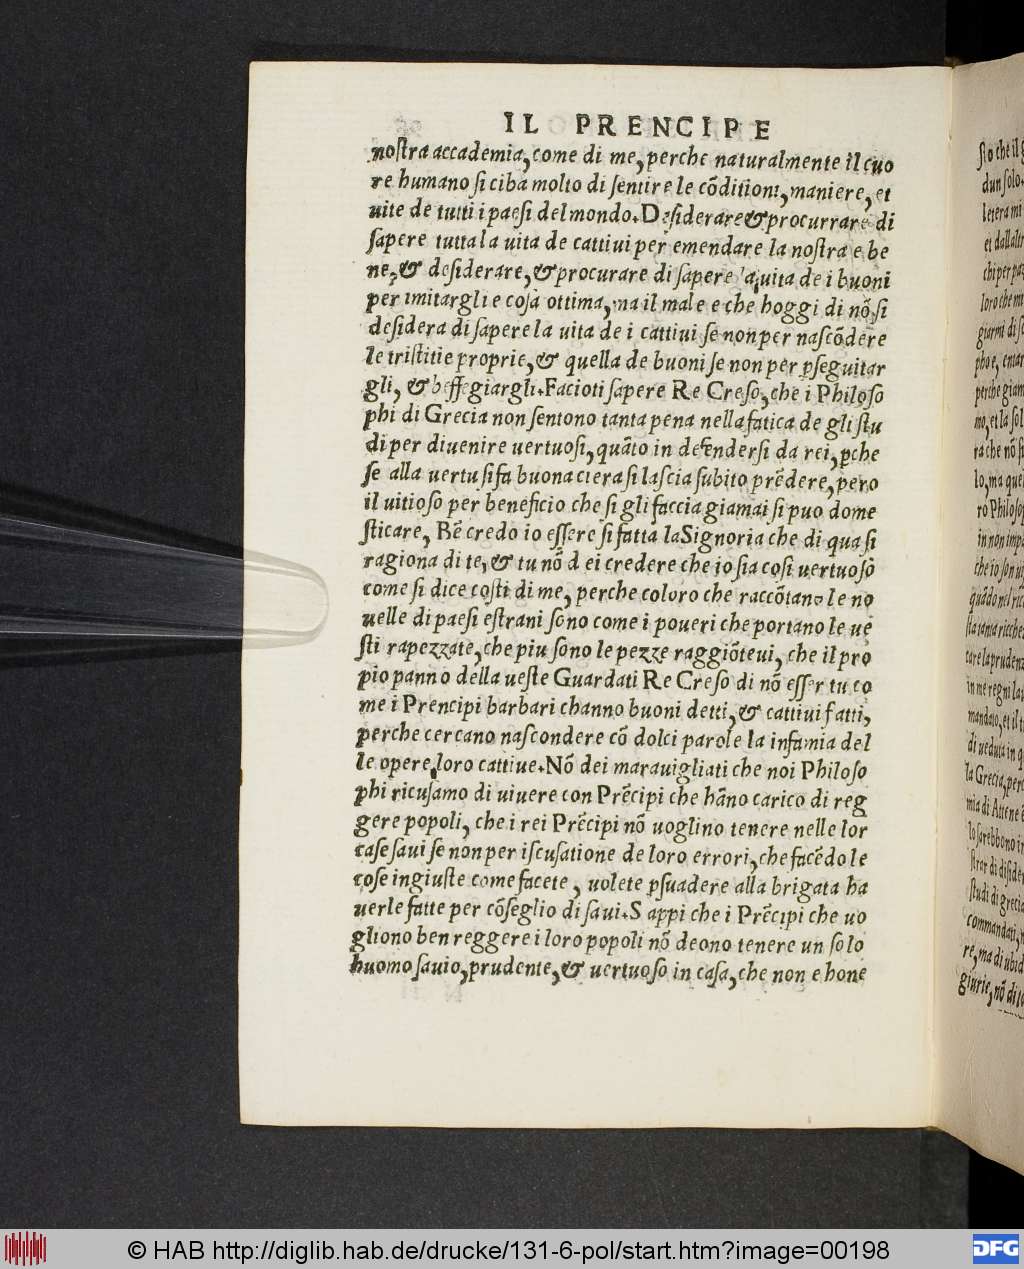 IL PRENCIPE
nostra accademia, come di me, perche naturalmente il cuo
re humano si ciba molto di sentire le cõditioni, maniere, et
uite de tutti i paesi del mondo. Desiderare & procurrare di
sapere tutta la uita de cattiui per emendare la nostra e be
ne, & desiderare, & procurare di sapere la uita de i buoni
per imitargli e cosa ottima, ma il male e che hoggi di nõ si
desidera di sapere la uita de i cattiui se non per nascõdere
le tristitie proprie, & quella de buoni se non per pseguitar
gli, & beffegiargli. Facioti sapere Re Creso, che i Philoso
phi di Grecia non sentono tanta pena nella fatica de gli stu
di per diuenire uertuosi, quãto in defendersi da rei, pche
se alla uertu si fa buona ciera si lascia subito prẽdere, pero
il uitioso per beneficio che si gli faccia giamai si puo dome
sticare, Bẽ credo io essere si fatta la Signoria che di qua si
ragiona di te, & tu nõ dei credere che io sia cosi uertuoso
come si dice costi di me, perche coloro che raccõtano le no
uelle di paesi estrani sono come i poueri che portano le ue
sti rapezzate, che piu sono le pezze raggiõteui, che il pro
pio panno della ueste Guardati Re Creso di nõ esser tu co
me i Prencipi barbari channo buoni detti, & cattiui fatti,
perche cercano nascondere cõ dolci parole la infamia del
le opere loro cattiue. Nõ dei marauigliati che noi Philoso
phi ricusamo di uiuere con Prẽcipi che hãno carico di reg
gere popoli, che i rei Prẽcipi nõ uoglino tenere nelle lor
case saui se non per iscusatione de loro errori, che facẽdo le
cose ingiuste come facete, uolete psuadere alla brigata ha
uerle fatte per cõseglio di saui. Sappi che i Prẽcipi che uo
gliono ben reggere i loro popoli nõ deono tenere un solo
huomo sauio, prudente, & uertuoso in casa, che non e hone
© HAB http://diglib.hab.de/drucke/131-6-pol/start.htm?image=00198
DFG